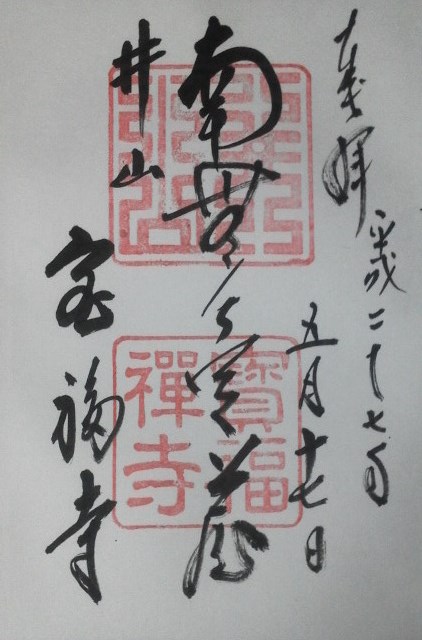 奉拝 平成二十七年
五月十七日
南無虚空蔵
井山
宝福寺
寶福
禪寺